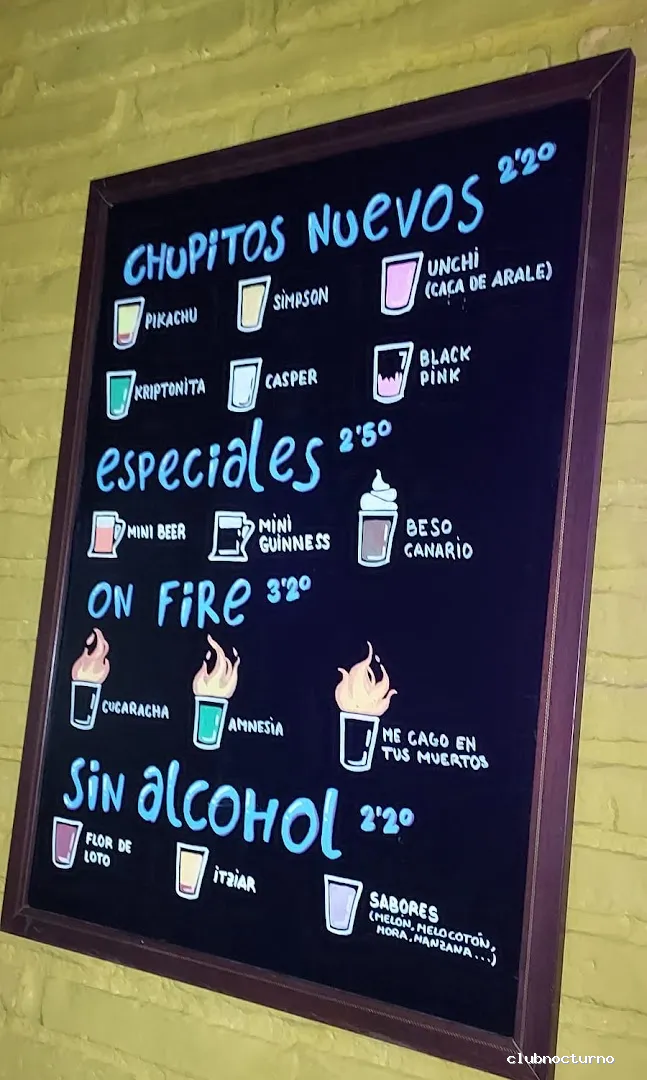 CHUPITOS NUEVOS 2'20
PIKACHU
SIMPSON
UNCHI
(CACA DE ARALE)
KRIPTONITA
CASPER
BLACK
PINK
especiales 2'50
MINI BEER
MINI
GUINNESS
BESO
CANARIO
ON FIRE 3'20
CUCARACHA
AMNESIA
ME CAGO EN
TUS MUERTOS
SIN alcoHol 2'20
FLOR DE
LOTO
ITZIAR
SABORES
(MELON, MELOCOTON,
MORA, MANZANA...)
clubnocturno